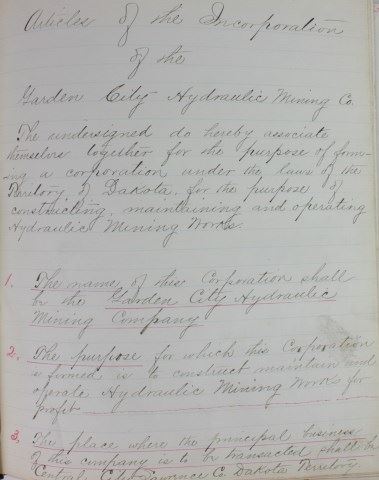 Articles of the Incorporation
of the
Garden City Hydraulic Mining Co.
The undersigned do hereby associate
themselves together for the purpose of form-
ing a corporation under the laws of the
Territory of Dakota, for the purpose of
constructing, maintaining and operating
Hydraulic Mining Works.
1. The name of this Corporation shall
be the Garden City Hydraulic
Mining Company
2. The purpose for which this Corporation
is formed is to construct maintain and
operate Hydraulic Mining Works for
profit
3. The place where the principal business
of this company is to be transacted shall be
Central City Lawrence Co. Dakota Territory.